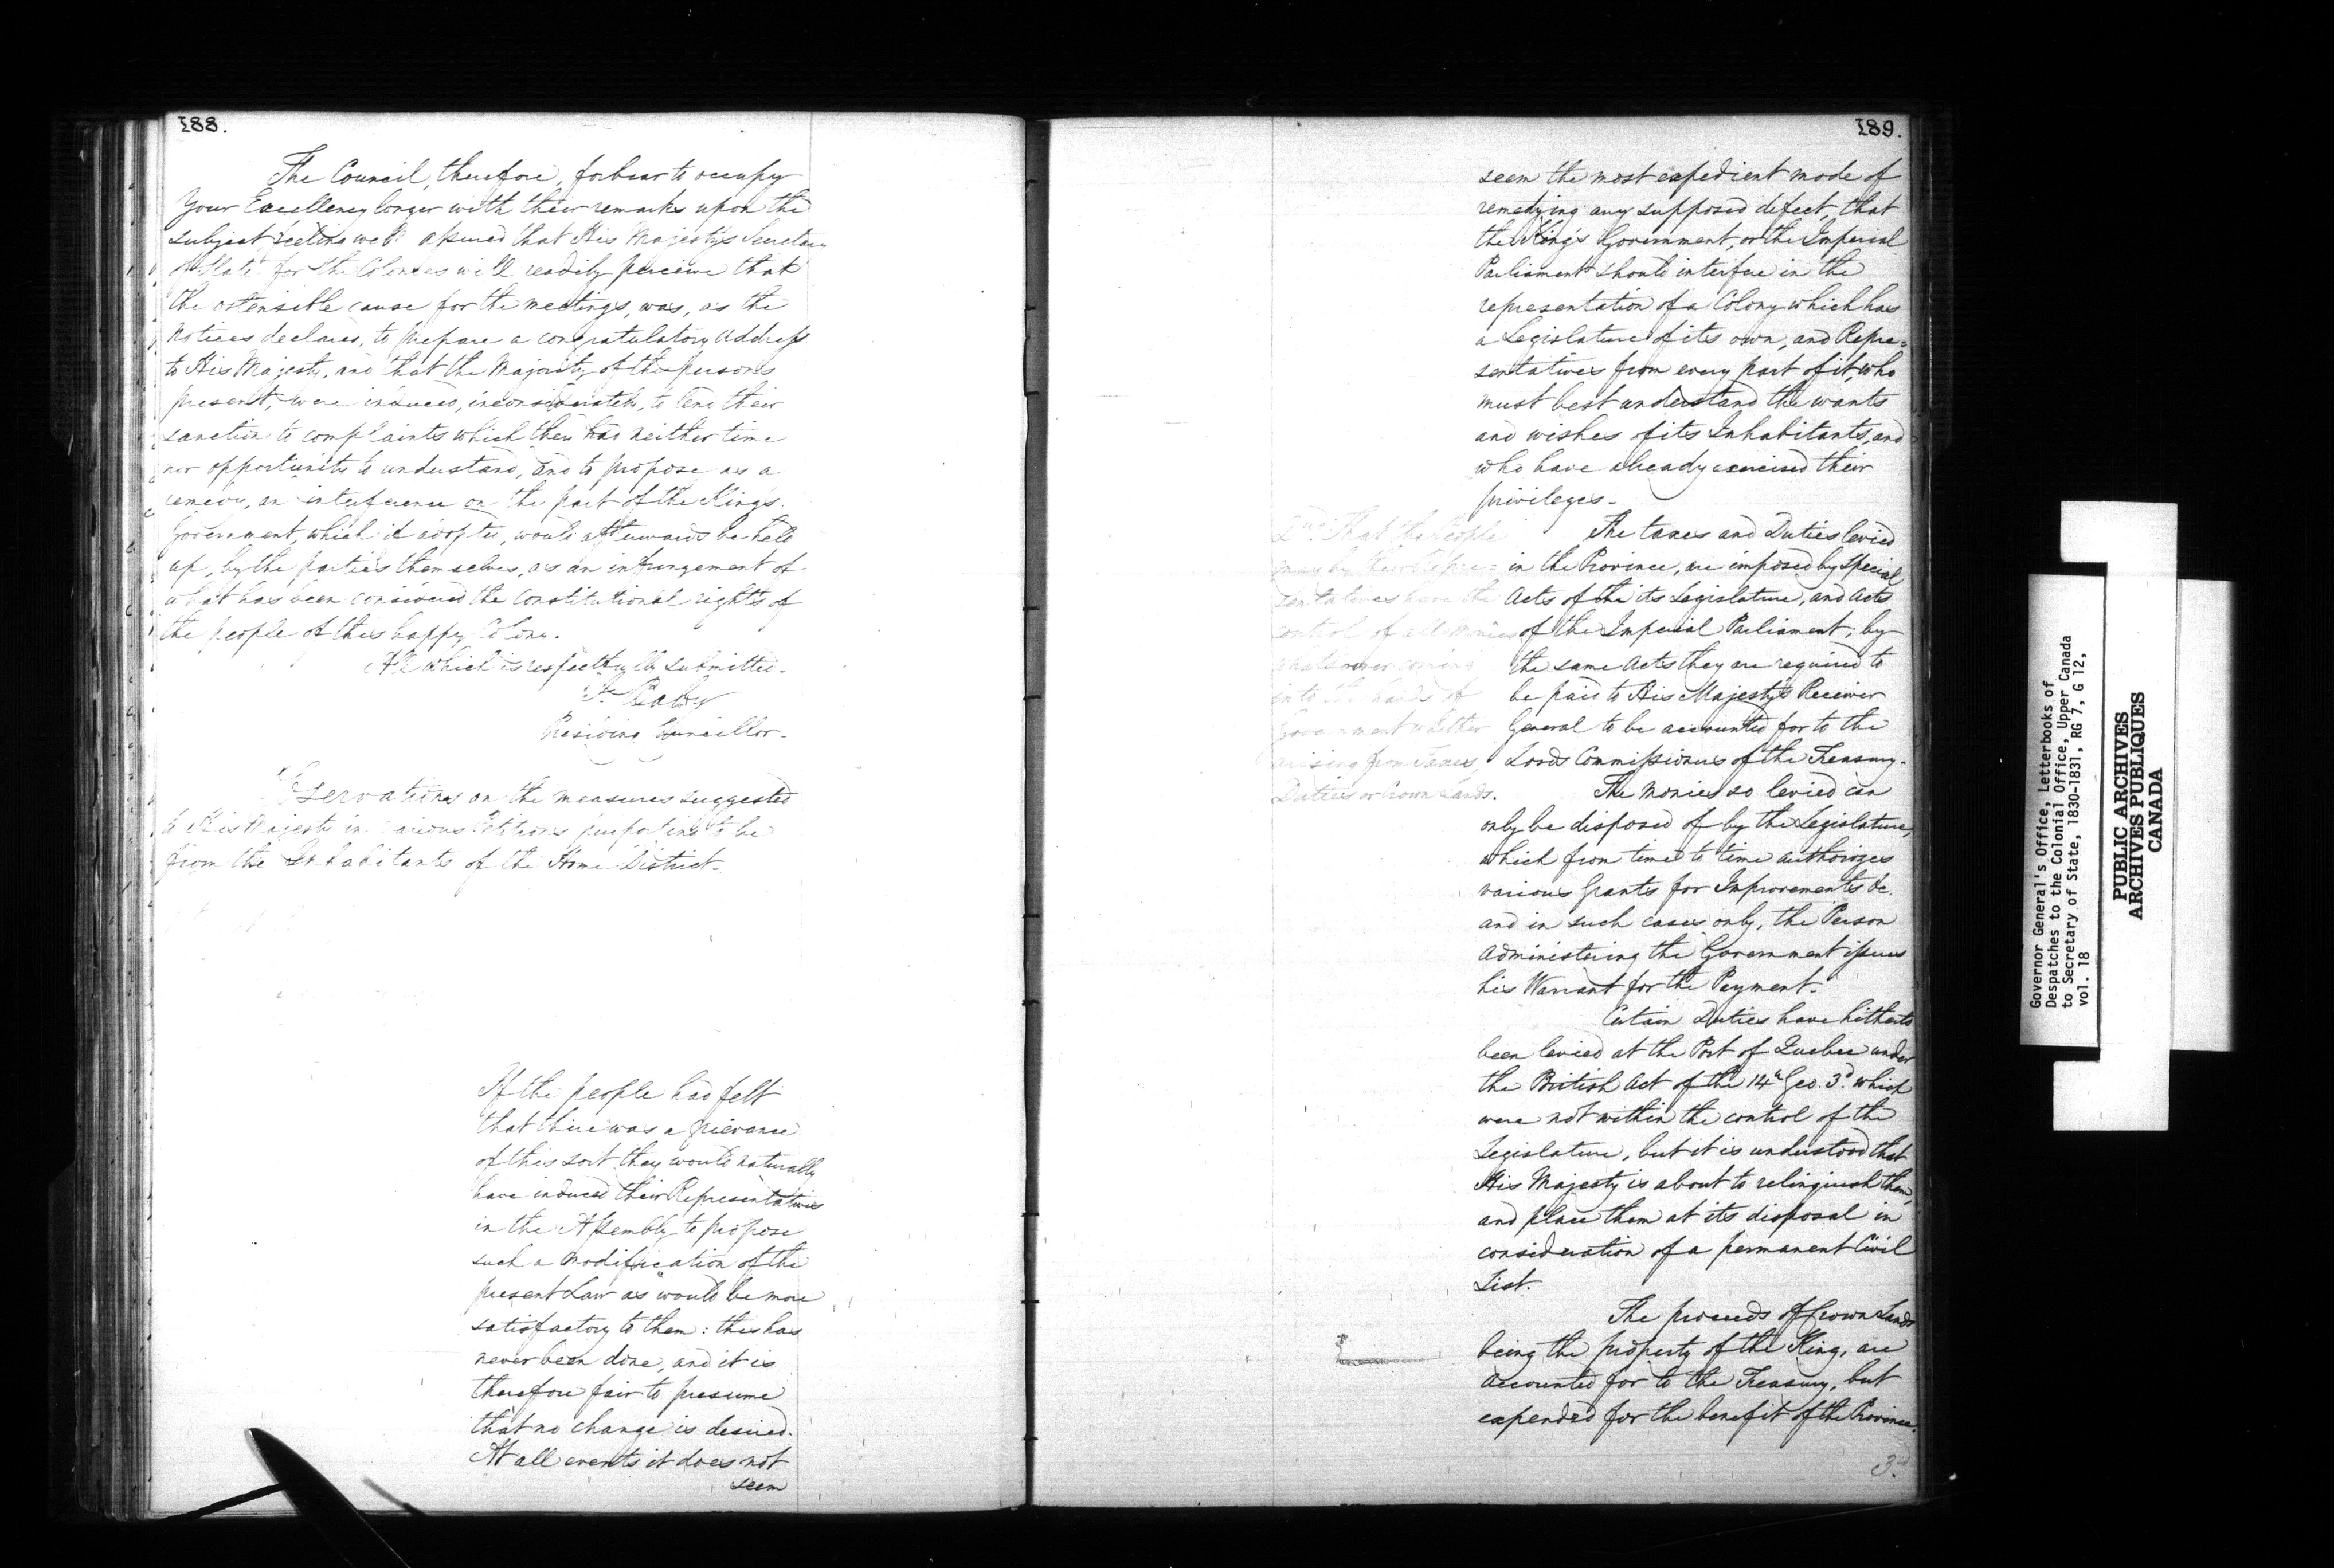 188.
The Council, therefore, forbear to occupy
Your Excellency longer with their remarks upon the
subject, feeling well assured that His Majesty's Secretary
of State for the Colonies will readily perceive that
the ostensible cause for the meetings, was, as the
notices declared, to prepare a congratulatory address
to His Majesty, and that the Majority of the persons
present, were induced, inconsiderately, to lend their
sanction to complaints which they had neither time
nor opportunity to understand, and to propose as a
remedy, an interference on the part of the King's
Government, which if adopted, would afterwards be held
up, by the parties themselves, as an infringement of
what has been considered the Constitutional rights of
the people of this happy Colony.
All which is respectfully submitted.
Js. Baby
Presiding Councillor.
Observations on the measures suggested
to His Majesty in various Petitions purporting to be
from the Inhabitants of the Home District.
If the people had felt
that there was a grievance
of this sort they would naturally
have induced their Representatives
in the Assembly to propose
such a modification of the
present Law as would be more
satisfactory to them: this has
never been done, and it is
therefore fair to presume
that no change is desired.
At all events it does not
seem
189.
seem the most expedient mode of
remedying any supposed defect, that
the King's Government, or the Imperial
Parliament should interfere in the
representation of a Colony which has
a Legislature of its own, and Repre=
sentatives from every part of it, who
must best understand the wants
and wishes of its Inhabitants, and
who have already exercised their
privileges.
2nd. That the People
may by their Repre=
sentatives have the
control of all Monies
whatsoever coming
into the hands of
Government whether
arising from Taxes,
Duties or Crown Lands.
The taxes and Duties levied
in the Province, are imposed by Special
Acts of the its Legislature, and Acts
of the Imperial Parliament; by
the same Acts they are required to
be paid to His Majesty's Receiver
General to be accounted for to the
Lords Commissioners of the Treasury.
The Monies so levied can
only be disposed of by the Legislature,
which from time to time authorizes
various Grants for Improvements &c.
and in such cases only, the Person
Administering the Government issues
his Warrant for the Payment.
Certain Duties have hitherto
been levied at the Port of Quebec under
the British Act of the 14th Geo. 3d. which
were not within the control of the
Legislature, but it is understood that
His Majesty is about to relinquish them,
and place them at its disposal in
consideration of a permanent Civil
List.
The proceeds of Crown Lands
being the property of the King, are
accounted for to the Treasury, but
expended for the benefit of the Province.
3rd
Governor General's Office, Letterbooks of
Despatches to the Colonial Office, Upper Canada
to Secretary of State, 1830-1831, RG 7, G 12,
vol. 18
PUBLIC ARCHIVES
ARCHIVES PUBLIQUES
CANADA